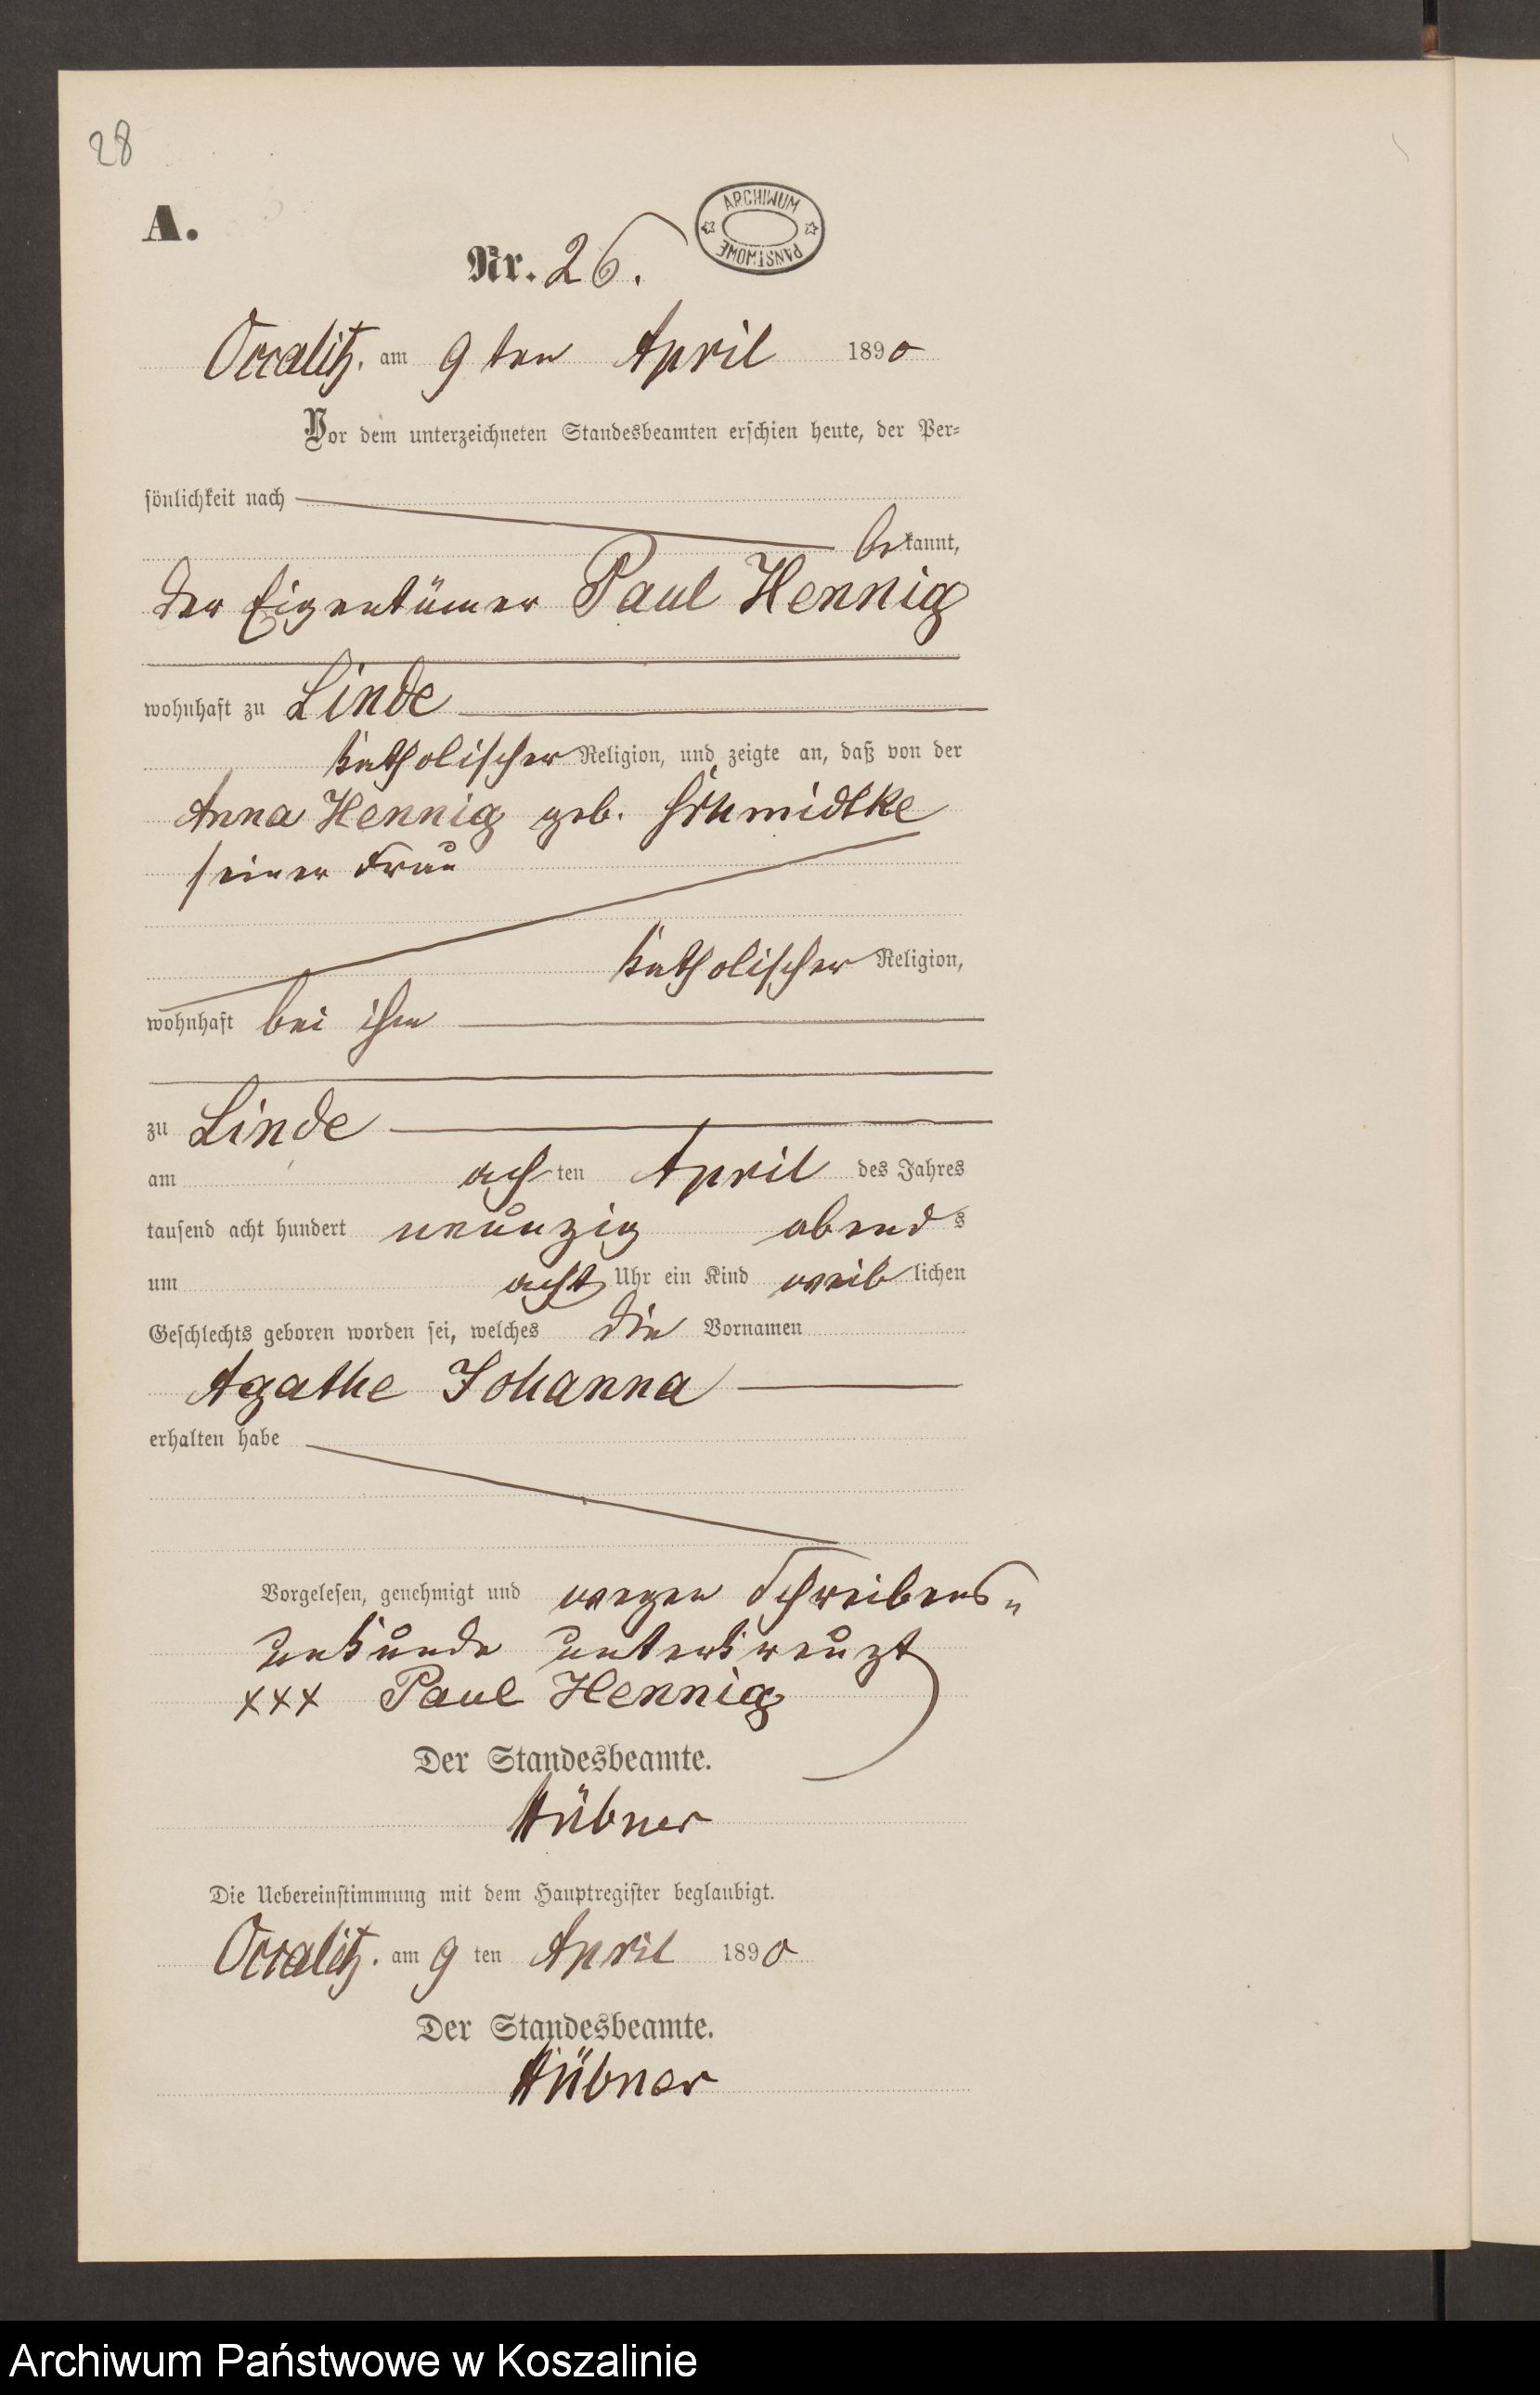 28
A.
ARCHIWUM PAŃSTWOWE
Nr. 26.
Occalitz. am 9 ten April 1890
Vor dem unterzeichneten Standesbeamten erschien heute, der Per=
sönlichkeit nach
bekannt,
der Eigentümer Paul Hennig
wohnhaft zu Linde
katholischer Religion, und zeigte an, daß von der
Anna Hennig geb. Schmidtke
seiner Frau
katholischer Religion,
wohnhaft bei ihm
zu Linde
am achten April des Jahres
tausend acht hundert neunzig abends
um acht Uhr ein Kind weiblichen
Geschlechts geboren worden sei, welches die Vornamen
Agathe Johanna
erhalten habe
Vorgelesen, genehmigt und wegen Schreibens=
unkunde unterkreuzt
xxx Paul Hennig
Der Standesbeamte.
Hübner
Die Uebereinstimmung mit dem Hauptregister beglaubigt.
Occalitz. am 9 ten April 1890
Der Standesbeamte.
Hübner
Archiwum Państwowe w Koszalinie